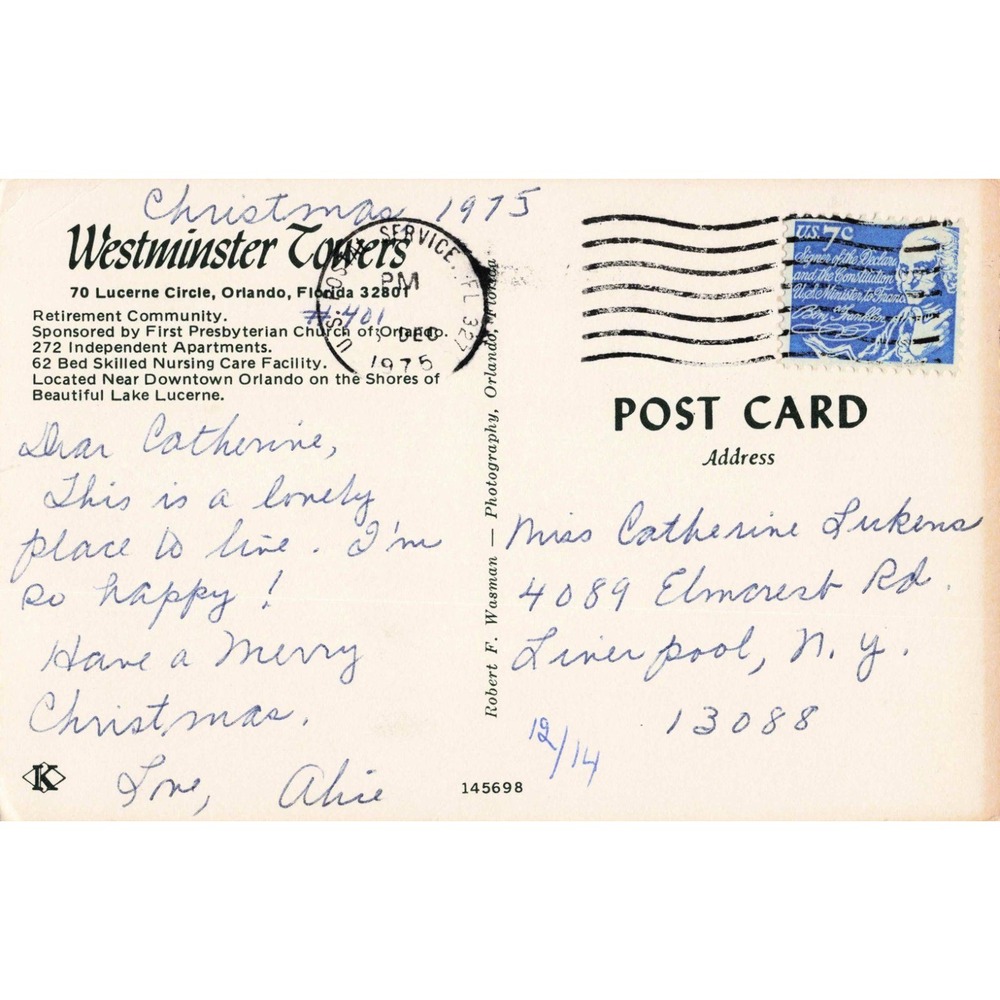 Christmas 1975
Westminster Towers
70 Lucerne Circle, Orlando, Florida 32801
#401
Retirement Community.
Sponsored by First Presbyterian Church of Orlando.
272 Independent Apartments.
62 Bed Skilled Nursing Care Facility.
Located Near Downtown Orlando on the Shores of
Beautiful Lake Lucerne.
Dear Catherine,
This is a lovely
place to live. I'm
so happy!
Have a Merry
Christmas.
Love, Alice
K
145698
Robert F. Wasman — Photography, Orlando, Florida
U.S. POSTAL SERVICE, FL 327
PM
DEC
1975
U.S. 7c
Signer of the Declara
and the Constitution
U.S. Minister to Franc
Benj Franklin
POST CARD
Address
Miss Catherine Lukens
4089 Elmcrest Rd.
Liverpool, N.Y.
13088
12/14